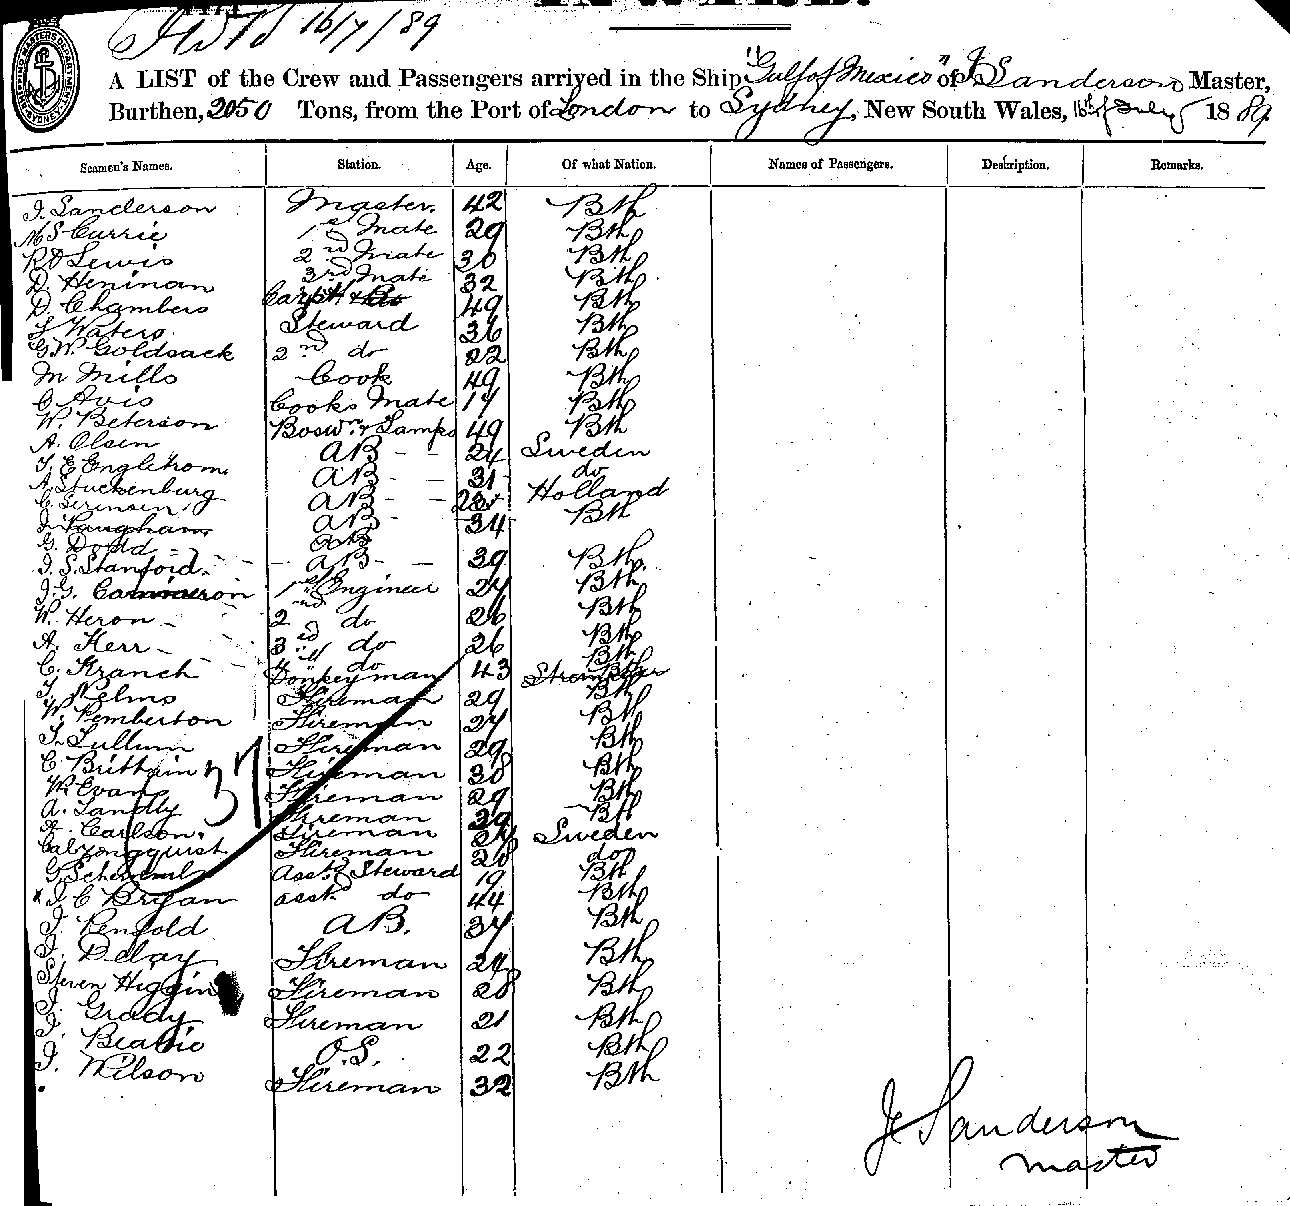 16/7/89
A LIST of the Crew and Passengers arrived in the Ship "Gulf of Mexico" of J Sanderson Master,
Burthen, 2050 Tons, from the Port of London to Sydney, New South Wales, 16th of July 1889
Seamen's Names. Station. Age. Of what Nation. Names of Passengers. Description. Remarks.
J. Sanderson Master. 42 Bth
Currie 1st Mate 29 Bth
R D Lewis 2nd Mate 30 Bth
D. Heninan 3rd Mate 32 Bth
D. Chambers Carptr 49 Bth
Waters Steward 36 Bth
G. W. Goldsack 2nd do 22 Bth
M Mills Cook 49 Bth
C Avis Cooks Mate 17 Bth
W. Peterson Boswn & Lamps 49 Bth
A. Olsen AB 24 Sweden
AB 31 do
A. Stuckenburg AB Holland
C. Serensen AB 34 Bth
J. Langham AB
G. Dodd AB 39 Bth.
J. S. Stanford 1st Engineer 27 Bth
J. G. Cameron 2nd do 26 Bth
W. Heron 3rd do 26 Bth
A. Kerr 4th do Bth
C. Kranch Donkeyman 43
Nelms Fireman 29 Bth
W. Pemberton Fireman 27 Bth
Lullum Fireman 29 Bth
C Brittain Fireman 30 Bth
W. Evans Fireman 29 Bth
A. Landly Fireman 39 Bth
A. Carlson. Fireman 27 Sweden
Fireman 28 do
G. Asst Steward 19 Bth
37
J. C Bryan asst do 44 Bth
J. Penfold AB. 37 Bth
J. Delay Fireman 24 Bth
Steven Higgin Fireman 28 Bth
J. Grady Fireman 21 Bth
J. Beattie O.S. 22 Bth
J. Wilson Fireman 32 Bth
J Sanderson
Master